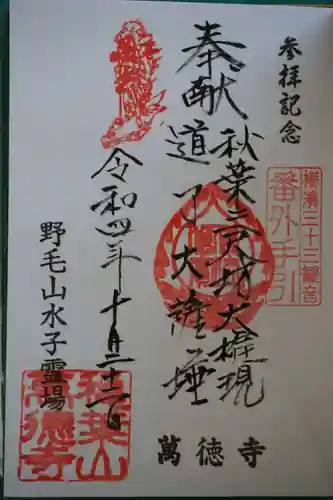 参拝記念
横濱三十三観音
番外手引
奉献
秋葉三尺坊大権現
道了大薩埵
萬徳寺
令和四年十月二十二日
野毛山水子霊場
秋葉山
萬德寺